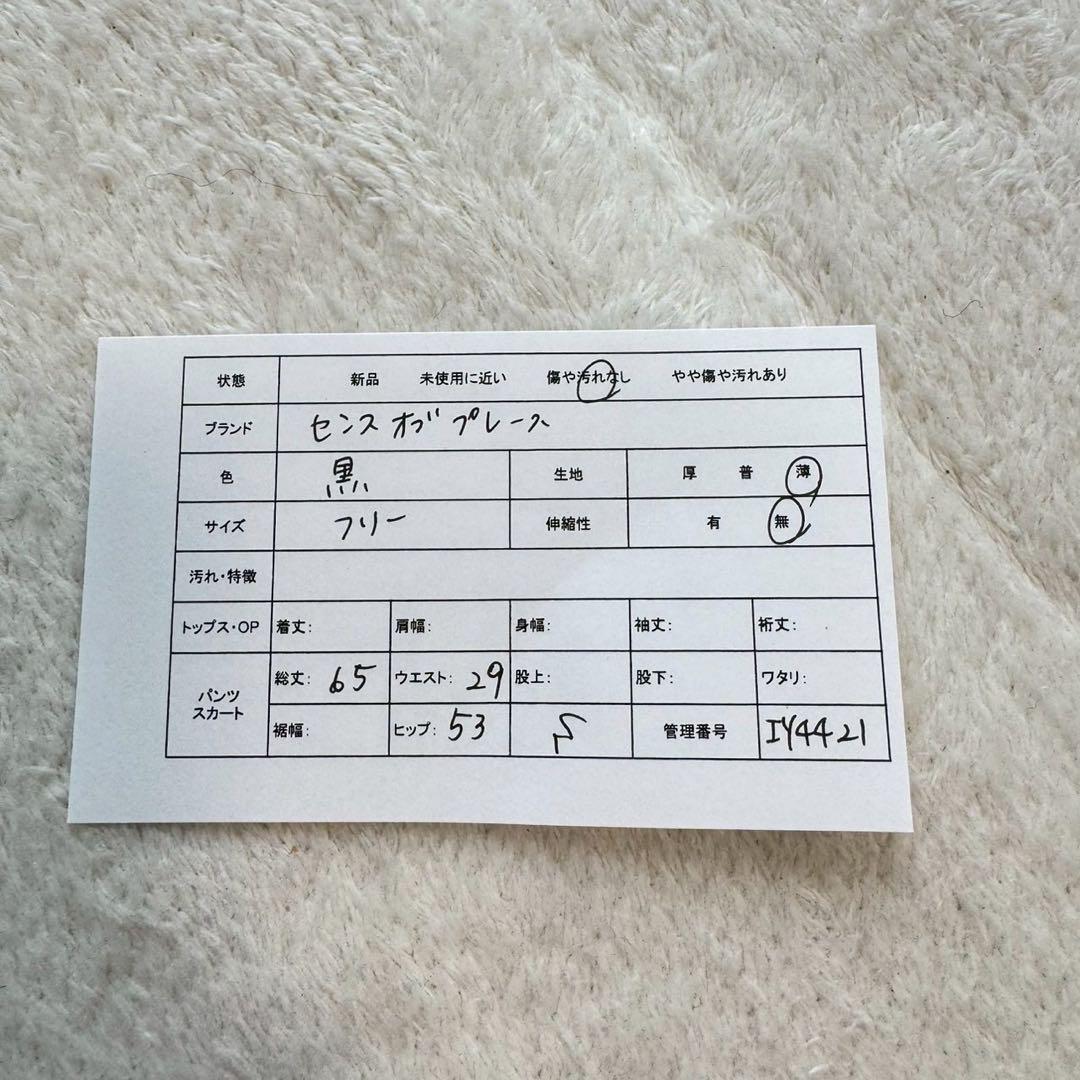 状態 新品 未使用に近い 傷や汚れなし やや傷や汚れあり
ブランド センスオブプレース
色 黒 生地 厚 普 薄
サイズ フリー 伸縮性 有 無
汚れ・特徴
トップス・OP 着丈: 肩幅: 身幅: 袖丈: 裄丈:
パンツ
スカート
総丈: 65 ウエスト: 29 股上: 股下: ワタリ:
裾幅: ヒップ: 53 管理番号 IY4421